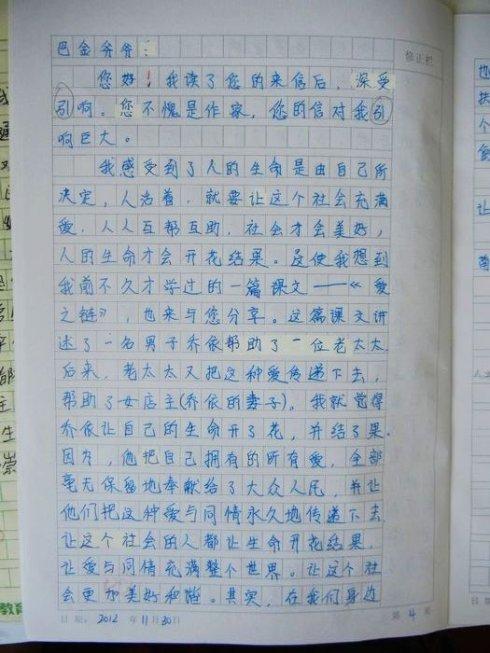 巴金爷爷：
您好！我读了您的来信后，深受
引啊。您不愧是作家，您的信对我引
响巨大。
我感受到了人的生命是由自己所
决定，人活着，就要让这个社会充满
爱，人人互帮互助，社会才会美好，
人的生命才会开花结果。这使我想到
我前不久才学过的一篇课文——《爱
之链》，也来与您分享。这篇课文讲
述了一名男子乔依帮助了一位老太太
后来，老太太又把这种爱传递下去，
帮助了女店主(乔依的妻子)。我就觉得
乔依让自己的生命开了花，并结了果。
因为，他把自己拥有的所有爱，全部
毫无保留地奉献给了大众人民，并让
他们把这种爱与同情永久地传递下去
让这个社会的人都让生命开花结果，
让爱与同情充满整个世界。让这个社
会更加美好和谐。其实，在我们身边
日期：2012年11月30日 第4页